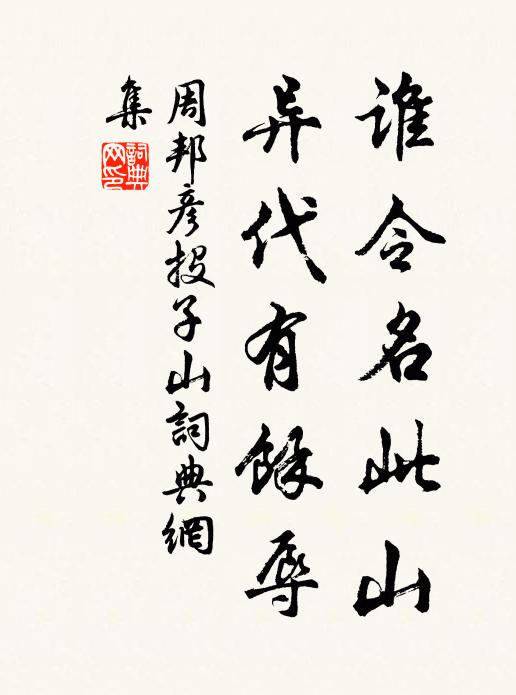 谁令名此山
异代有馀辱
周邦彦投子山詞典網
集
詞典网印